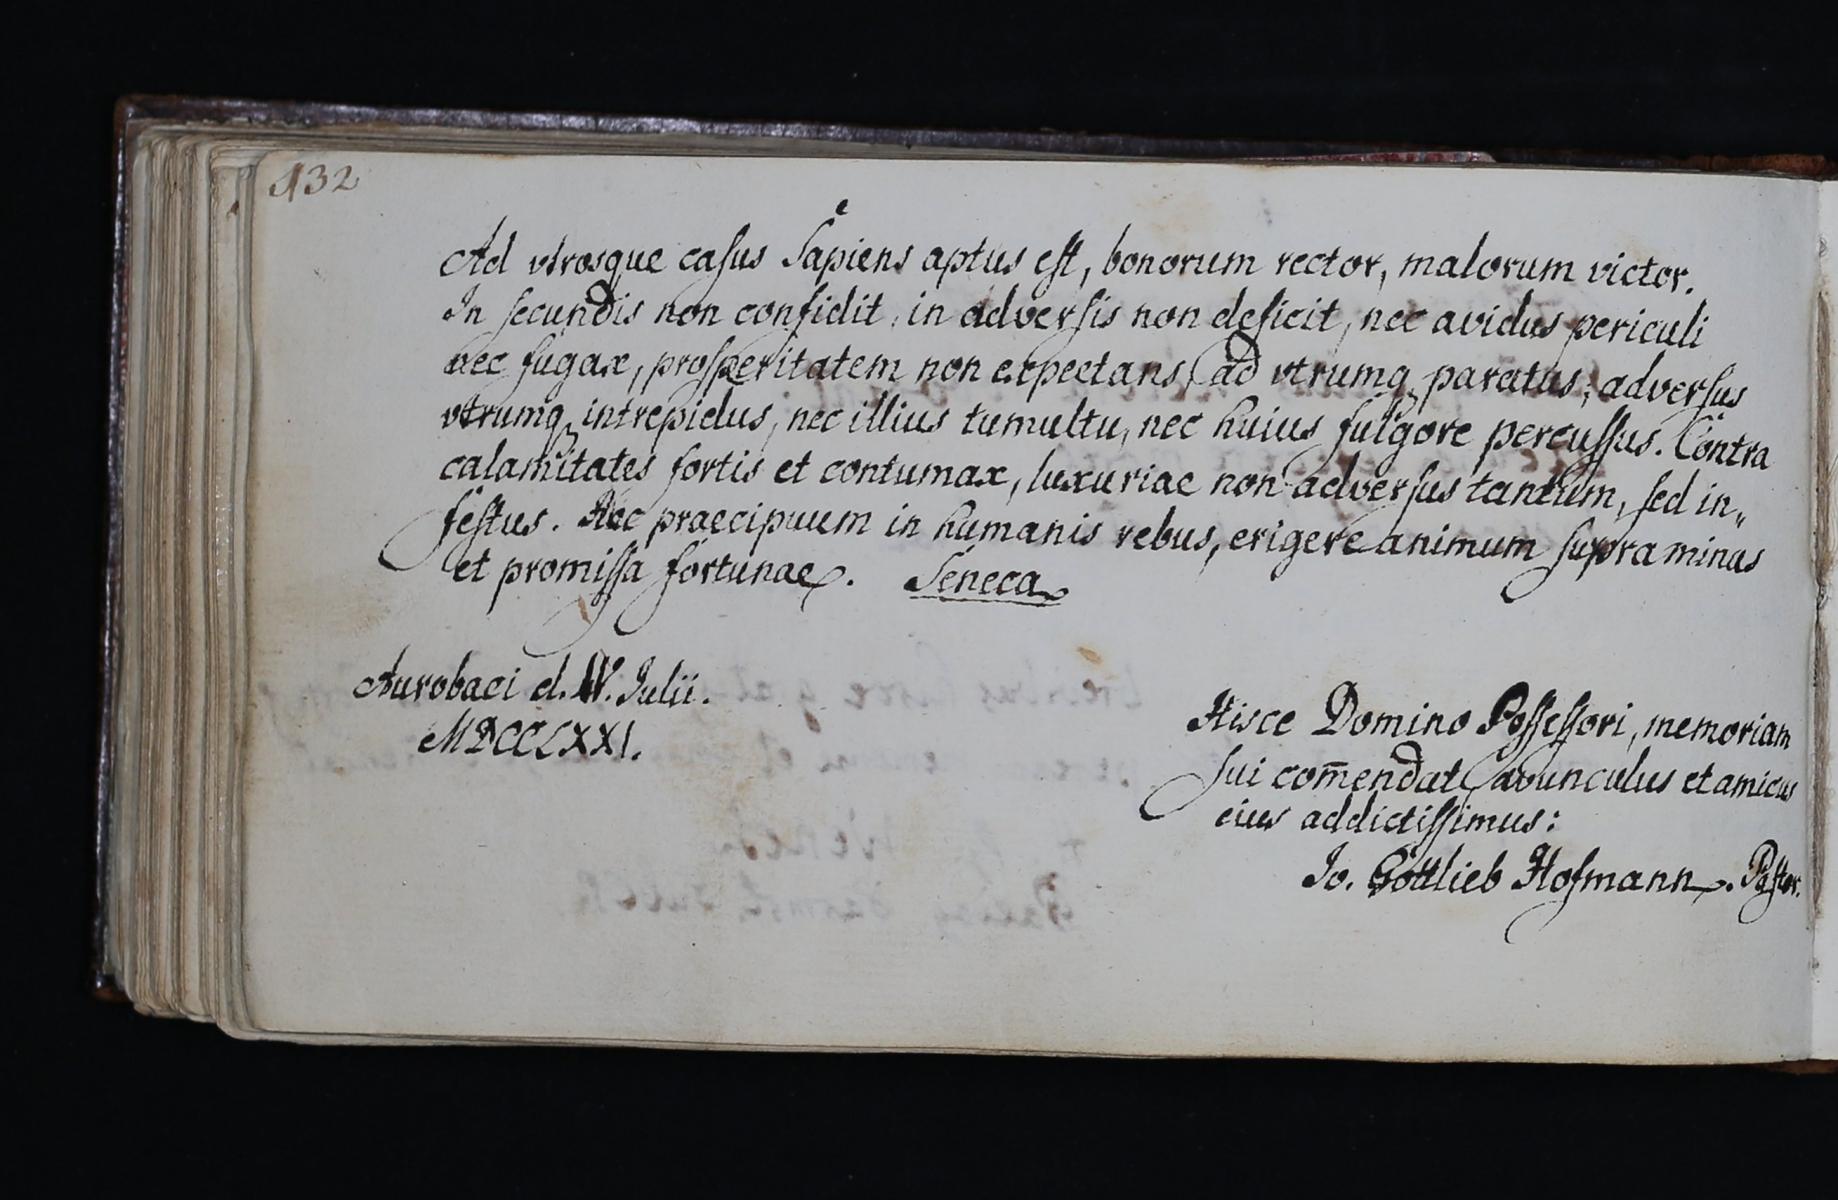 432
Ad vtrosque casus Sapiens aptus est, bonorum rector, malorum victor.
In secundis non confidit, in adversis non deficit, nec avidus periculi
nec fugax, prosperitatem non expectans, ad vtrumq paratus; adversus
vtrumq intrepidus, nec illius tumultu, nec huius fulgore percussus. Contra
calamitates fortis et contumax, luxuriae non adversus tantum, sed in„
festus. Hoc praecipuum in humanis rebus, erigere animum supra minas
et promissa fortunae. Seneca
Aurobaci d. IV. Julii.
MDCCLXXI.
Hisce Domino Possessori, memoriam
sui com̄endat avunculus et amicus
eius addictissimus:
Jo. Gottlieb Hofmann. Pastor.